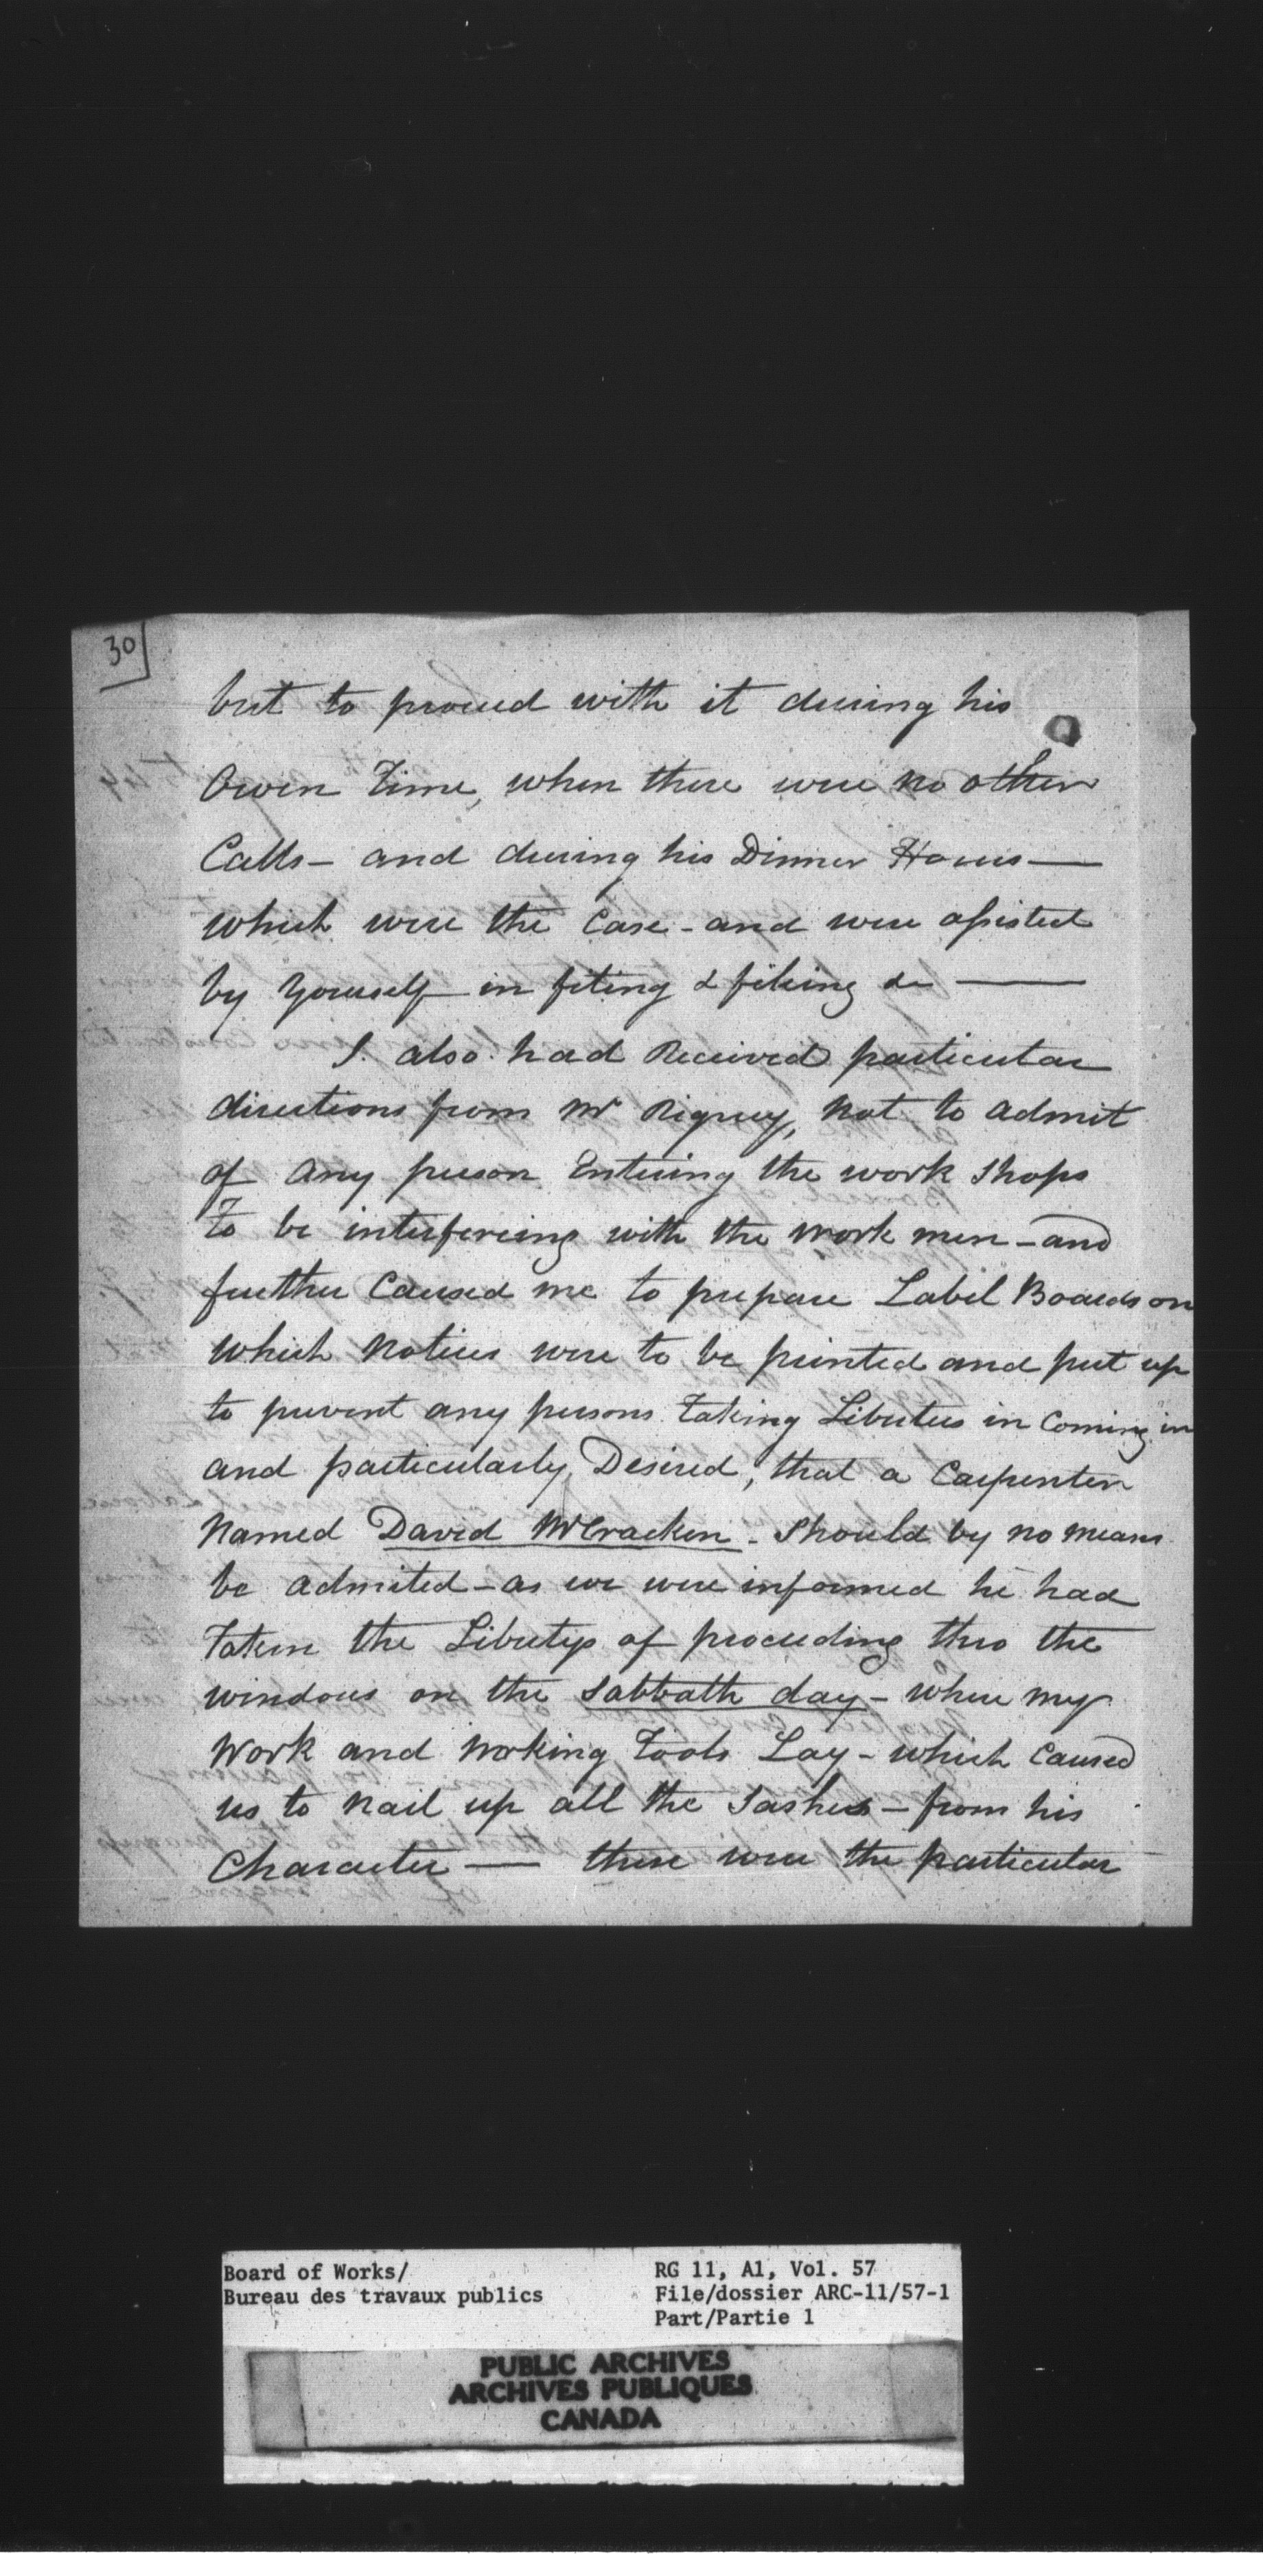 30
but to proceed with it during his
Owen Time, when there were no other
Calls - and during his Dinner Hours —
which were the Case - and were assisted
by Yourself in fiting & filing &c —
I also had Received particular
directions from Mr Rigney, not to admit
of any person Entering the work Shops
To be interfereing with the work men - and
further Caused me to prepare Label Boards on
which Notices were to be printed and put up
to prevent any persons Taking Liberties in Coming in
and particularly Desired, that a Carpenter
Named David McCracken - Should by no means
be admited - as we were informed he had
Taken the Libertys of proceeding thro the
windows on the Sabbath day - where my
Work and Working Tools Lay - which Caused
us to Nail up all the Sashes - from his
Character — these were the particular
Board of Works/
Bureau des travaux publics
RG 11, A1, Vol. 57
File/dossier ARC-11/57-1
Part/Partie 1
PUBLIC ARCHIVES
ARCHIVES PUBLIQUES
CANADA